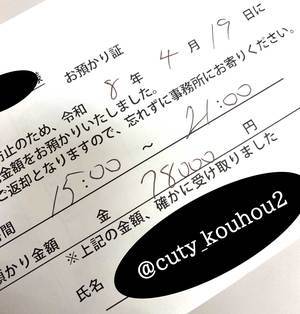 様 お預かり証
令和 8 年 4 月 19 日に
防止のため、
金額をお預かりいたしました。
ご返却となりますので、忘れずに事務所にお寄りください。
時間 15:00 ～ 21:00
預かり金額 金 28000 円
※上記の金額、確かに受け取りました
氏名
@cuty_kouhou2